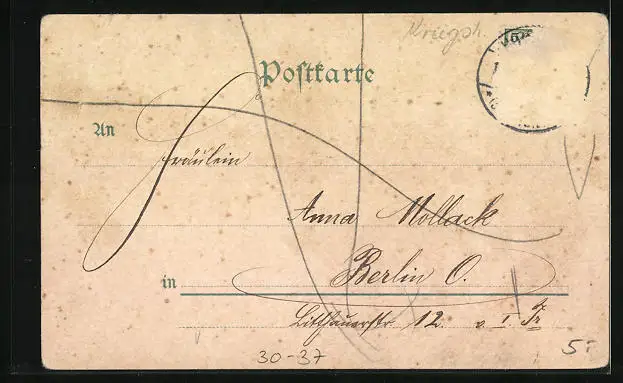 Kriegsh.
Postkarte
An
Fräulein
Anna Mollack
in Berlin O.
Litthauerstr. 12. v. I. Tr
30-37
5.-